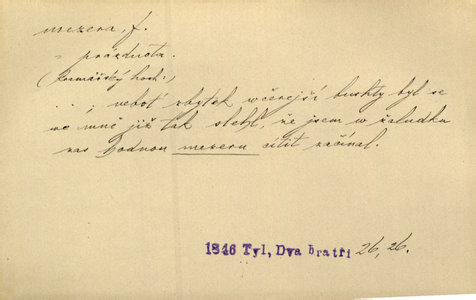 mezera, f.
= prázdnota.
(kramářský hoch:)
...; neboť zbytek včerejší buchty byl se
ve mně již tak slehl, že jsem v žaludku
zas hodnou mezeru cítit začínal.
1846 Tyl, Dva bratři 26, 26.